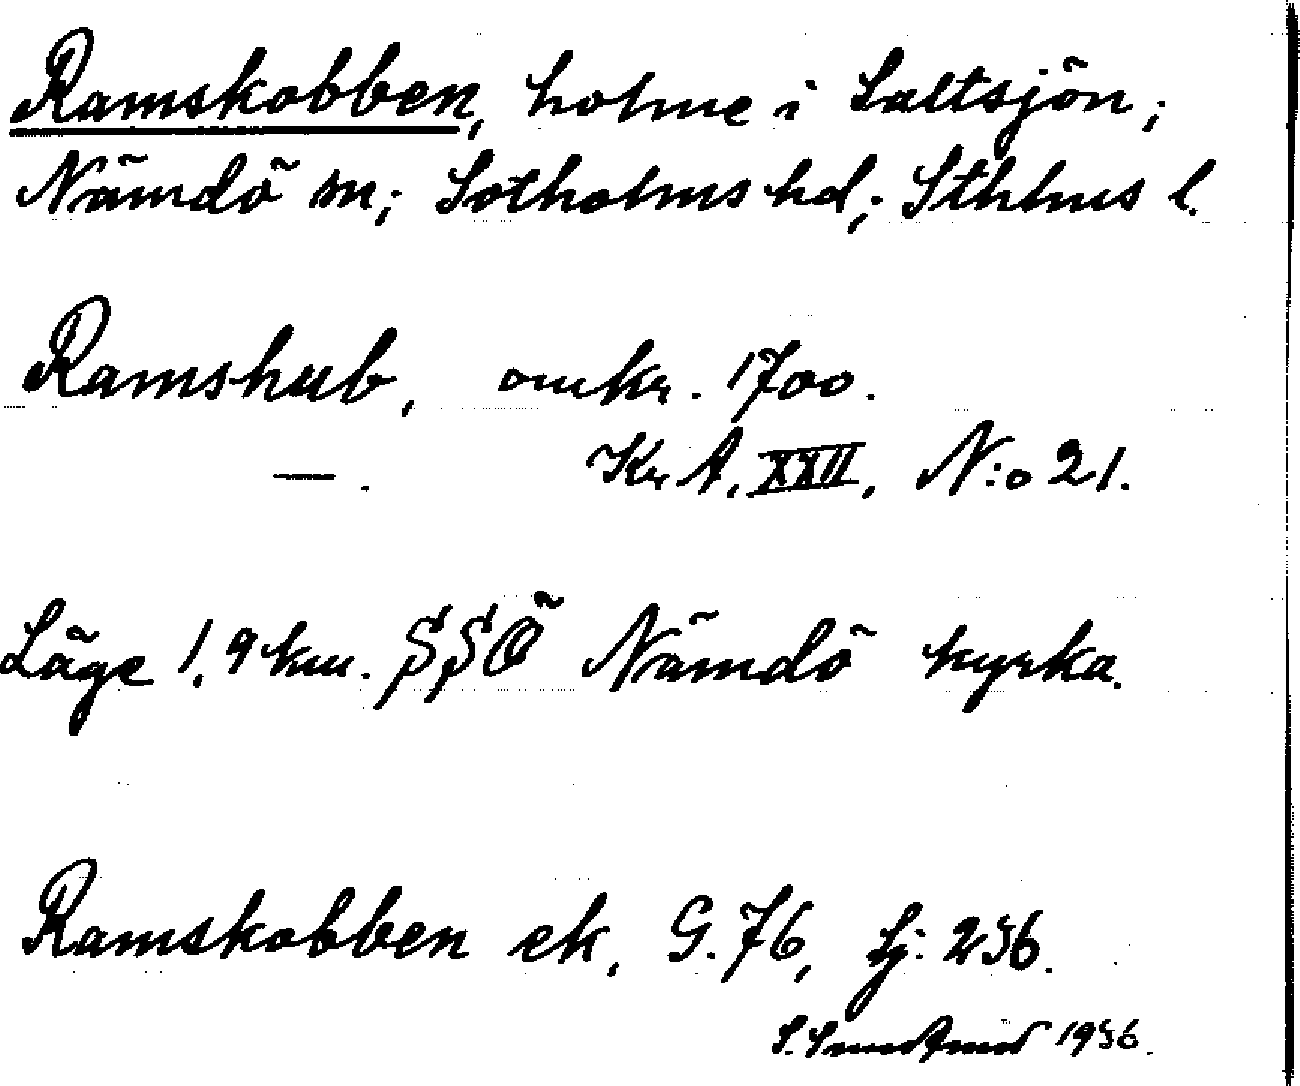 Ramskobben, holme i Saltsjön;
Nämdö sn; Sotholms hd; Sthlms l.
Ramshub, omkr. 1700.
— . Kr A. XXII, N:o 21.
Läge 1,9 km. SSÖ Nämdö kyrka.
Ramskobben ek, G. 76, Sj: 256.
1956.